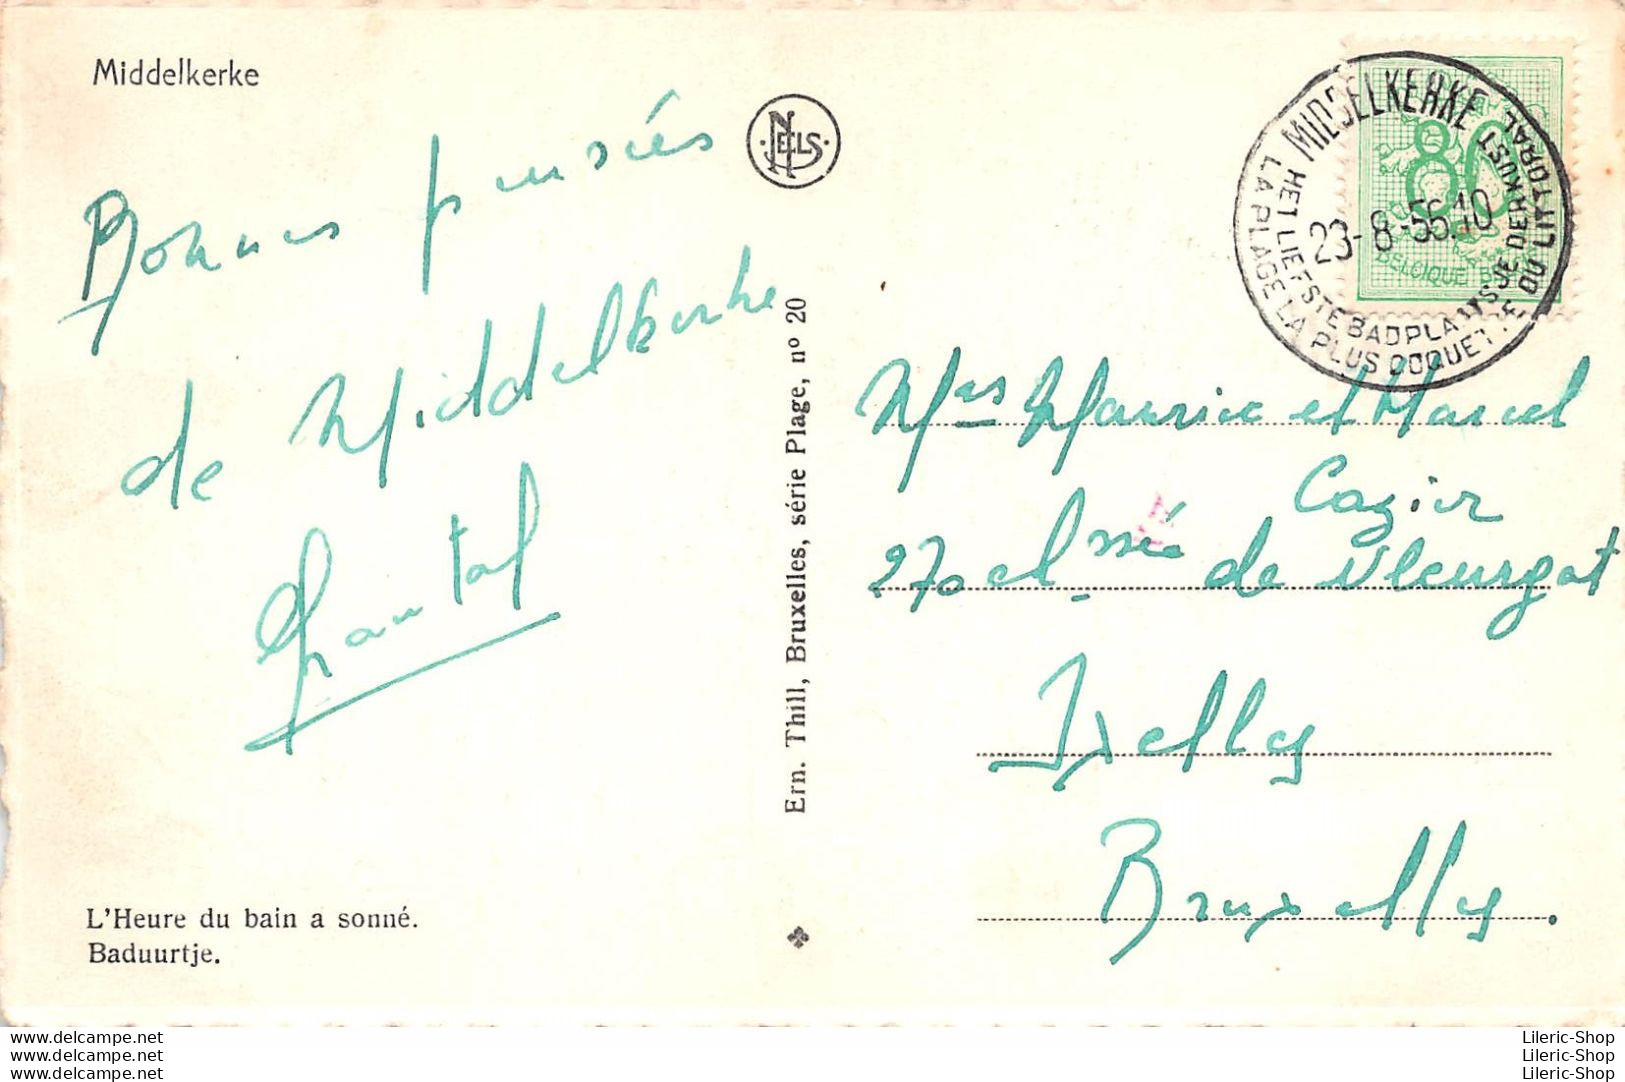 Middelkerke
Bonnes pensées
de Middelkerke
Chantal
L'Heure du bain a sonné.
Baduurtje.
NELS
Ern. Thill, Bruxelles, série Plage, nº 20
MIDDELKERKE
23-8-56.10
HET LIEFSTE BADPLAATSJE DER KUST
LA PLAGE LA PLUS COQUETTE DU LITTORAL
80
BELGIQUE B
Mrs Maurice et Marcel
Cazier
270 chssée de Vleurgat
Ixelles
Bruxelles.
www.delcampe.net
www.delcampe.net
www.delcampe.net
Lileric-Shop
Lileric-Shop
Lileric-Shop